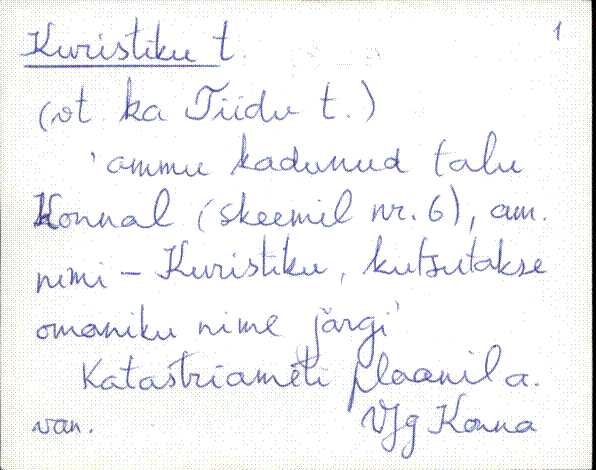 Kuristiku t. 1
(vt. ka Tiidu t.)
'ammu kadunud talu
Konnal (skeemil nr. 6), am.
nimi – Kuristiku, kutsutakse
omaniku nime järgi'
Katastriameti plaanil a.
van. VJg Konna